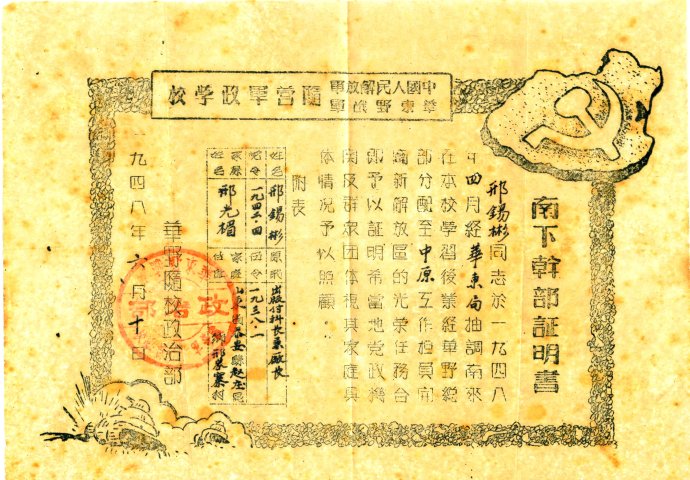 中國人民解放軍
華東野戰軍
隨營軍政學校
南下幹部証明書
邢錫彬同志於一九四八
年四月經華東局抽調南來
在本校學習後業經華野總
部分配至中原工作担員完
滿新解放區的光榮任務合
即予以証明希當地党政機
関及群众团体視其家庭具
体情况予以照顧
附表
姓名 邢錫彬 原職 出版付科長兼廠長
一九四二.四 一九三八.一
家長姓名 邢光楣 家庭住址
華野隨校政治部
一九四八年六月十日
政治部